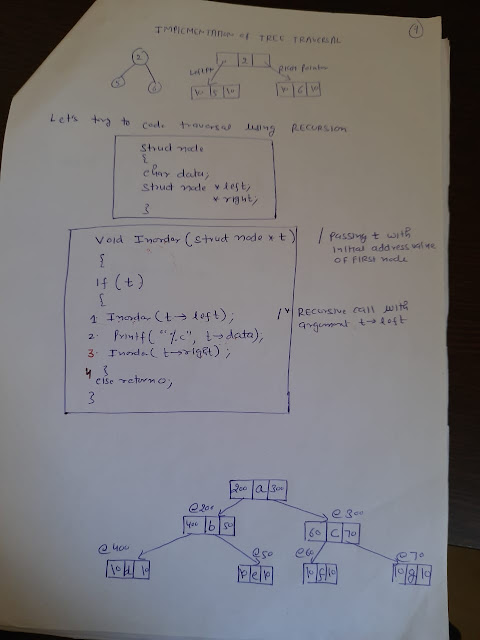 1
IMPLEMENTATION OF TREE TRAVERSAL
2
2
Left Ptr
Right Pointer
5
6
10 5 10
10 6 10
Let's try to code traversal using RECURSION
Struct node
{
char data;
Struct node * left,
* right;
}
Void Inorder (Struct node * t)
/ Passing t with
initial address value
OF FIRST node
{
if (t)
{
1 Inorder (t → left);
/* RECURSIVE call with
argument t → left
2. Printf ("%c", t → data);
3. Inorder (t → right);
4 }
else return 0;
}
200 a 300
@200
@300
400 b 50
60 C 70
@400
@50
@60
@70
10 d 10
10 e 10
10 f 10
10 g 10